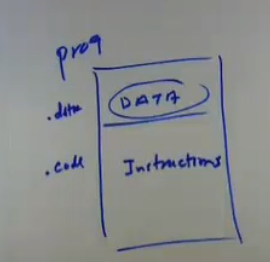 prog
.data DATA
.code Instructions